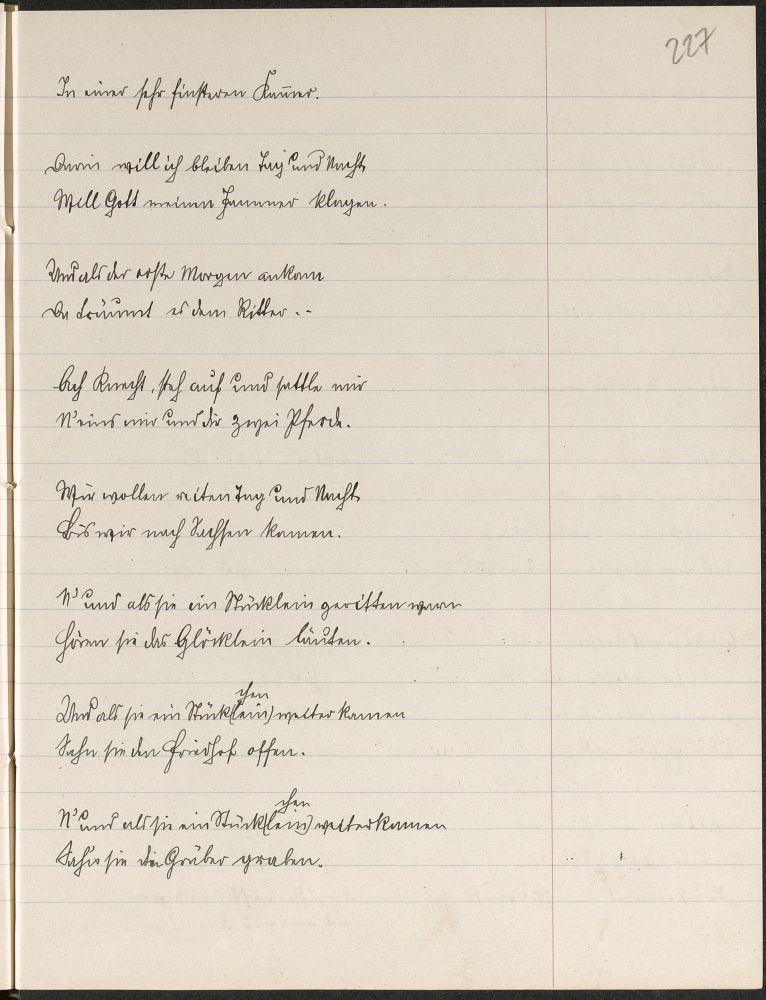 227
In einer sehr finsteren Kam̅er.
Darin will ich bleiben Tag und Nacht
Will Gott meinen Jammer klagen.
Und als der erste Morgen ankam
Da träumt es dem Ritter . -
Ach Knecht, steh auf und sattle mir
N'eins mir und dir zwei Pferde.
Wir wollen reiten Tag und Nacht
Bis wir nach Sachsen kamen.
N' und als sie ein Stücklein geritten warn
Hören sie das Glöcklein läuten.
chen
Und als sie ein Stück(lein) weiter kamen
Sahn sie den Friedhof offen.
chen
N' und als sie ein Stück(lein) weiterkamen
Sahn sie die Gräber graben.